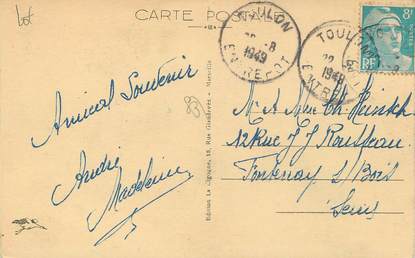 Lot
CARTE POSTALE
TOULON
22 -8
1949
ENTREPOT
TOULON
22 -8
1949
ENTREPOT
8F
RF
Amical Souvenir
André
Madeleine
Edition La Cigogne, 18, Rue Grandval, Marseille
M. & Mme Ch. Heintch
12 Rue J J Rousseau
Fontenay s/ Bois
Seine